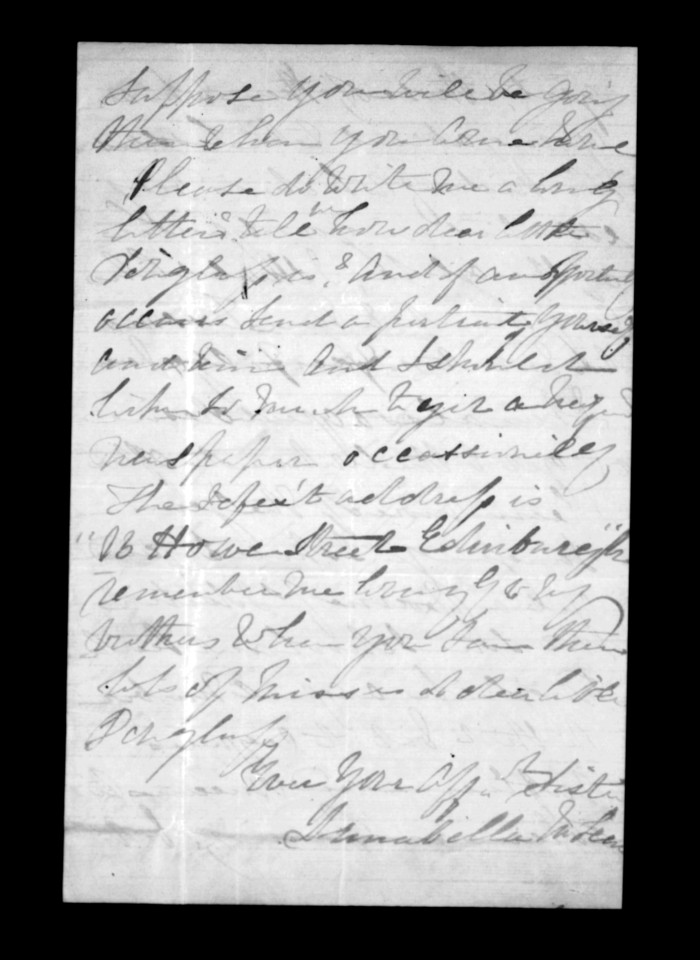 suppose you will be going
then when you come here
Please do write me a long
letter & tell me how dear little
Douglass is, & And if an opportunity
occurs send a portrait of yourself
and him And I should
like so much to get a
newspaper occassionilly
The safe't address is
"13 Howe Street Edinburgh"
remember me lovingly to my
brothers when you see them
lots of kisses to dear little
Douglass
Ever Your Aff'n Sister
Annabella McLean